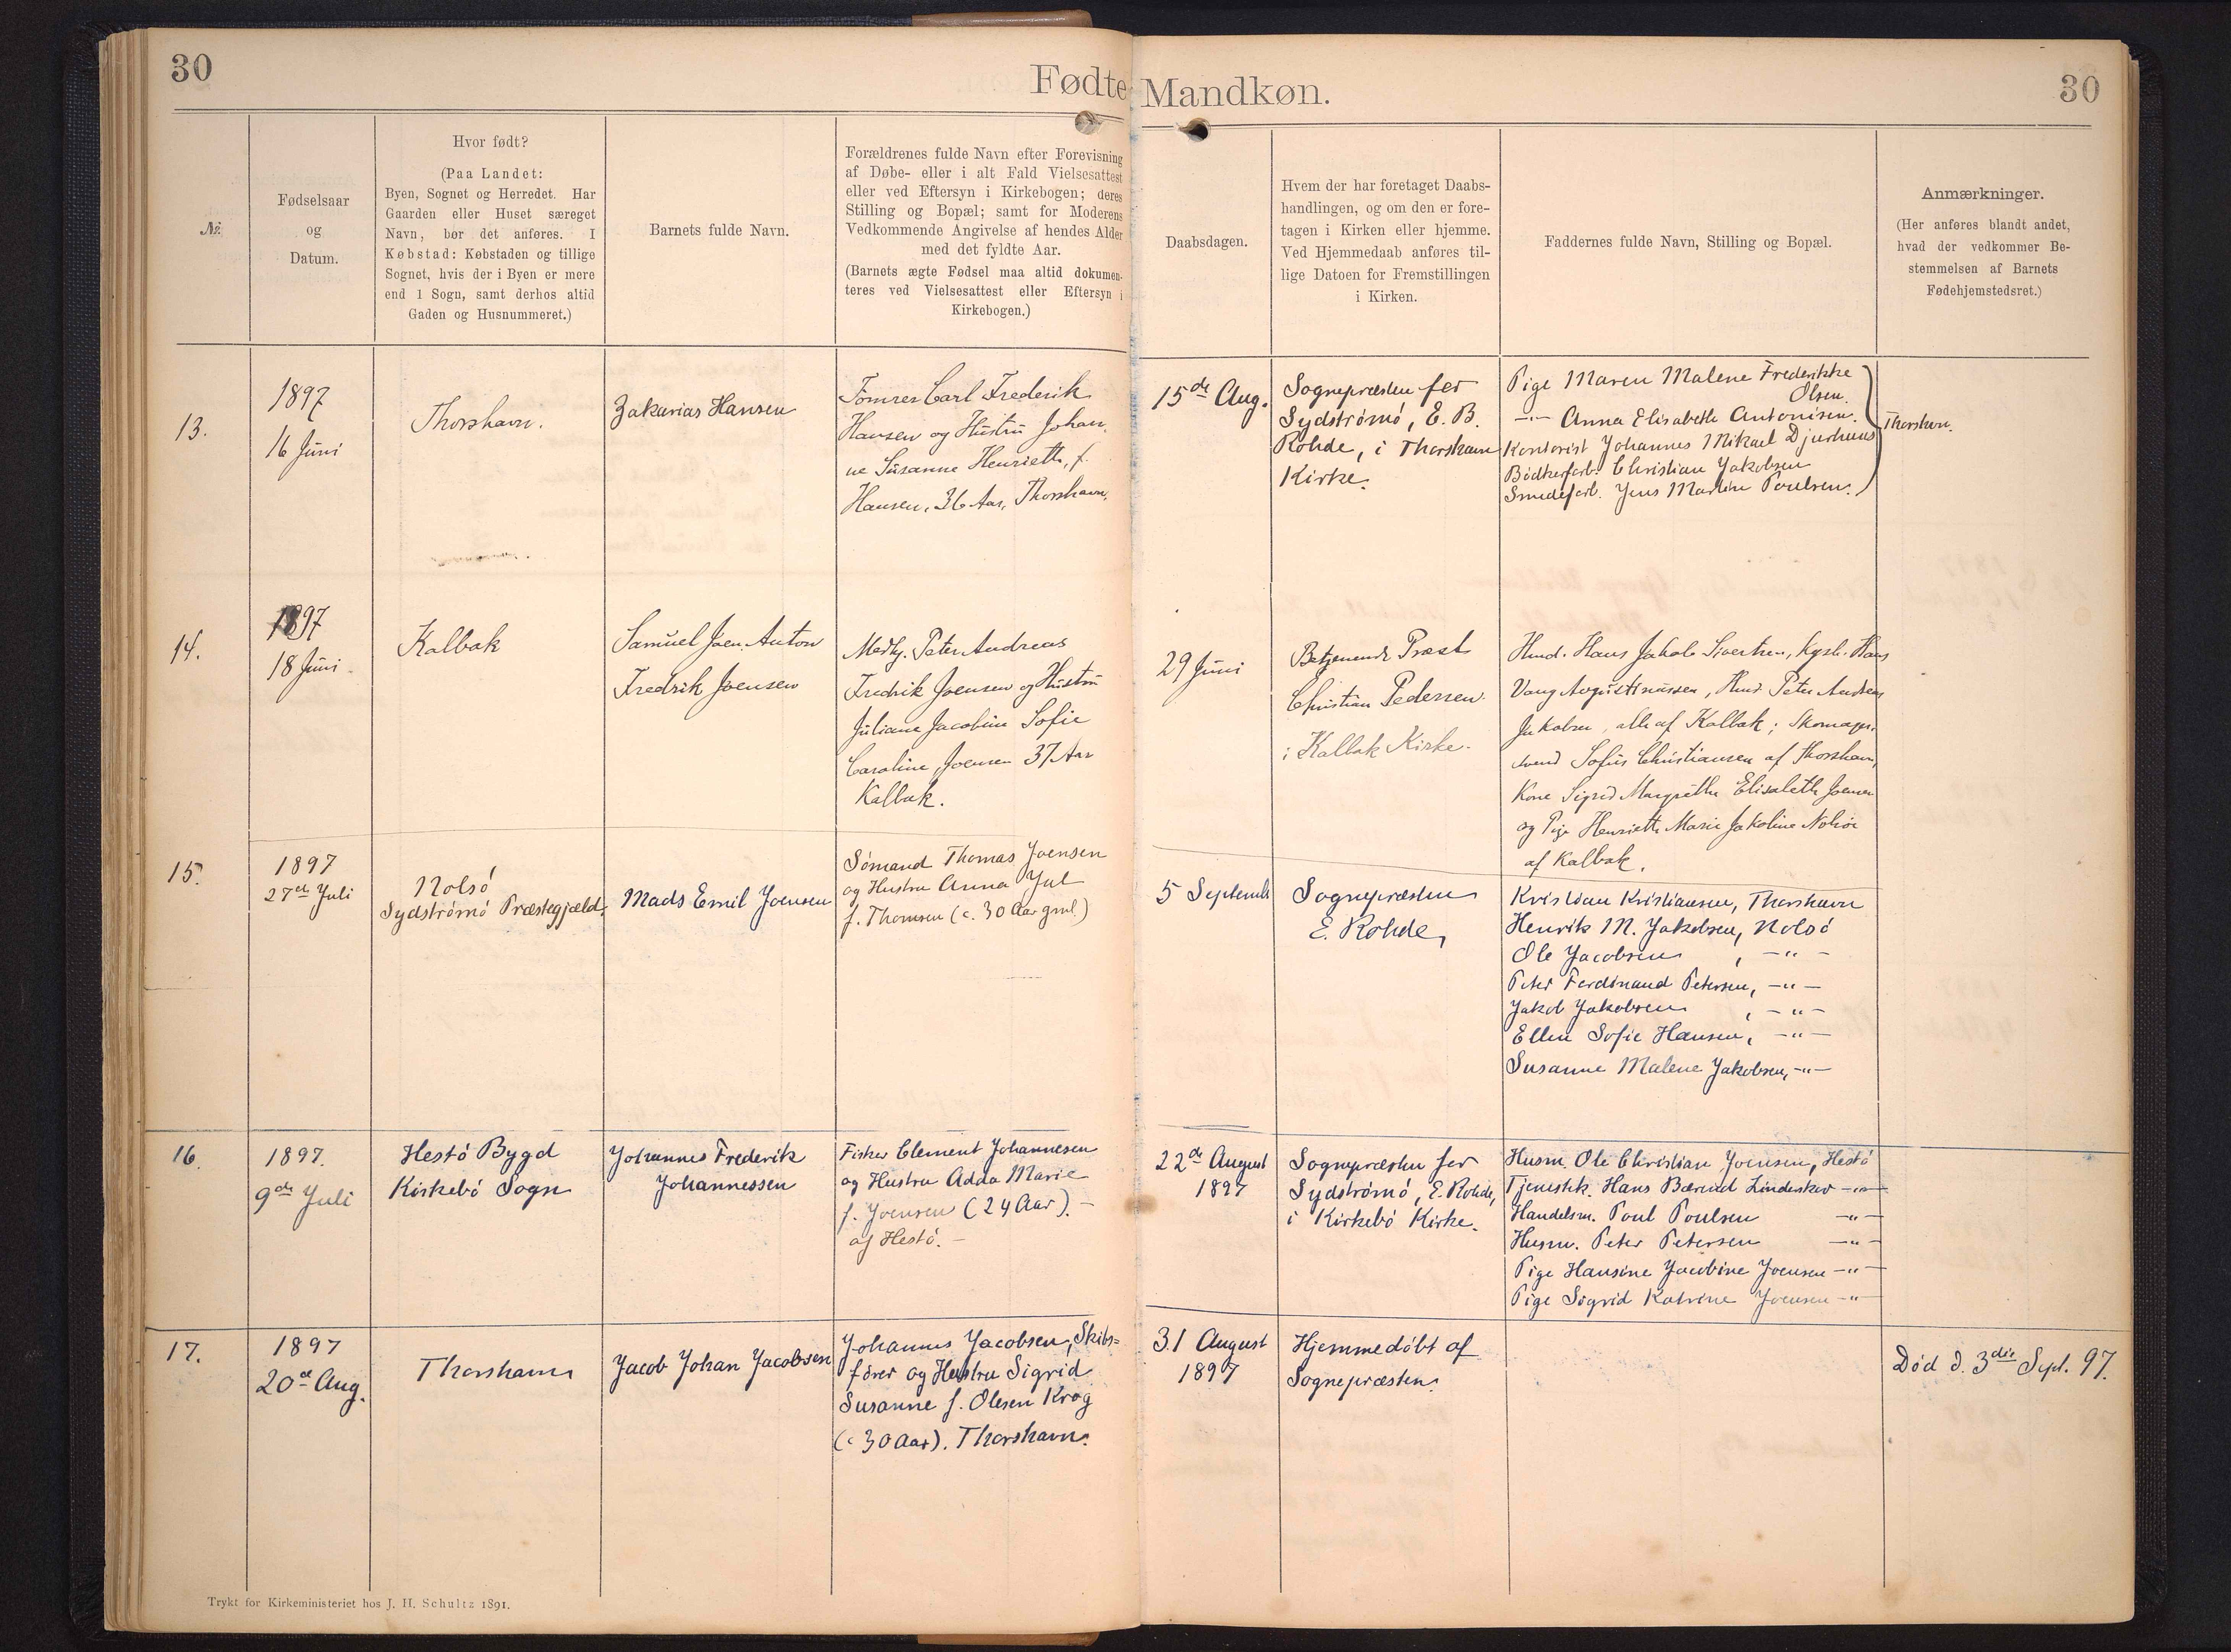 30
Fødte
Mandkøn.
30
№
Fødselsaar
og
Datum.
Hvor født?
(Paa Landet:
Byen, Sognet og Herredet. Har
Gaarden eller Huset særeget
Navn, bør det anføres. I
Købstad: Købstaden og tillige
Sognet, hvis der i Byen er mere
end 1 Sogn, samt derhos altid
Gaden og Husnummeret.)
Barnets fulde Navn.
Forældrenes fulde Navn efter Forevisning
af Døbe- eller i alt Fald Vielsesattest
eller ved Eftersyn i Kirkebogen; deres
Stilling og Bopæl; samt for Moderens
Vedkommende Angivelse af hendes Alder
med det fyldte Aar.
(Barnets ægte Fødsel maa altid dokumen-
teres ved Vielsesattest eller Eftersyn i
Kirkebogen.)
Daabsdagen.
Hvem der har foretaget Daabs-
handlingen, og om den er fore-
tagen i Kirken eller hjemme.
Ved Hjemmedaab anføres til-
lige Datoen for Fremstillingen
i Kirken.
Faddernes fulde Navn, Stilling og Bopæl.
Anmærkninger.
(Her anføres blandt andet,
hvad der vedkommer Be-
stemmelsen af Barnets
Fødehjemstedsret.)
13.
1897
16 Juni
Thorshavn.
Zakarias Hansen
Tømrer Carl Frederik
Hansen og Hustru Johan-
ne Susanne Henriette, f.
Hansen, 36 Aar, Thorshavn.
15de Aug.
Sognepræsten for
Sydstrømö, E. B.
Rohde, i Thorshavn
Kirke.
Pige Maren Malene Frederikke
Olsen.
-"- Anna Elisabeth Antonisen.
Kontorist Johannes Mikael Djurhuus
Bödkerforb. Christian Jakobsen
Smedeforb. Jens Martin Poulsen.
Thorshvn.
14.
1897
18 Juni
Kalbak
Samuel Joen Anton
Fredrik Joensen
Medhj. Peter Andreas
Fredrik Joensen og Hustru
Juliane Jacobine Sofie
Caroline, Joensen 37 Aar
Kalbak.
29 Juni
Betjenende Præst
Christian Pedersen
i Kalbak Kirke.
Hmd. Hans Jakob Sivertsen, Hans
Vang Augustinussen, Hmd. Peter Andreas
Jakobsen, alle af Kalbak; Skomager-
svend Sofus Christiansen af Thorshavn,
Kone Sigrid Margrethe Elisabeth Joensen
og Pige Henriette Marie Jakobine Nolsöe
af Kalbak.
15.
1897
27de Juli
Nolsö
Sydströmö Præstegjæld.
Mads Emil Joensen
Sömand Thomas Joensen
og Hustru Anna Jul
f. Thomsen (c. 30 Aar gml.)
5 Septemb
Sognepræsten
E. Rohde,
Kristian Kristiansen, Thorshavn
Henrik M. Jakobsen, Nolsö
Ole Jacobsen , -"-
Peter Ferdinand Petersen, -"-
Jakob Jakobsen , -"-
Ellen Sofie Hansen, -"-
Susanne Malene Jakobsen, -"-
16.
1897.
9de Juli
Hestö Bygd
Kirkebö Sogn
Johannes Frederik
Johannessen
Fisker Clement Johannesen
og Hustru Adda Marie
f. Joensen (24 Aar). -
af Hestö. -
22de August
1897
Sognepræsten for
Sydströmö, E. Rohde,
i Kirkebö Kirke.
Husm. Ole Christian Joensen, Hestö
Tjenestk. Hans Bærend Lindeskov -"-
Handelsm. Poul Poulsen -"-
Husm. Peter Petersen -"-
Pige Hansine Jacobine Joensen -"-
Pige Sigrid Katrine Joensen -"-
17.
1897
20de Aug.
Thorshavn
Jacob Johan Jacobsen
Johannes Jacobsen, Skibs=
förer og Hustru Sigrid
Susanne f. Olesen Krog
(c 30 Aar). Thorshavn.
31 August
1897
Hjemmedöbt af
Sognepræsten.
Död d. 3die Sept. 97.
Trykt for Kirkeministeriet hos J. H. Schultz 1891.